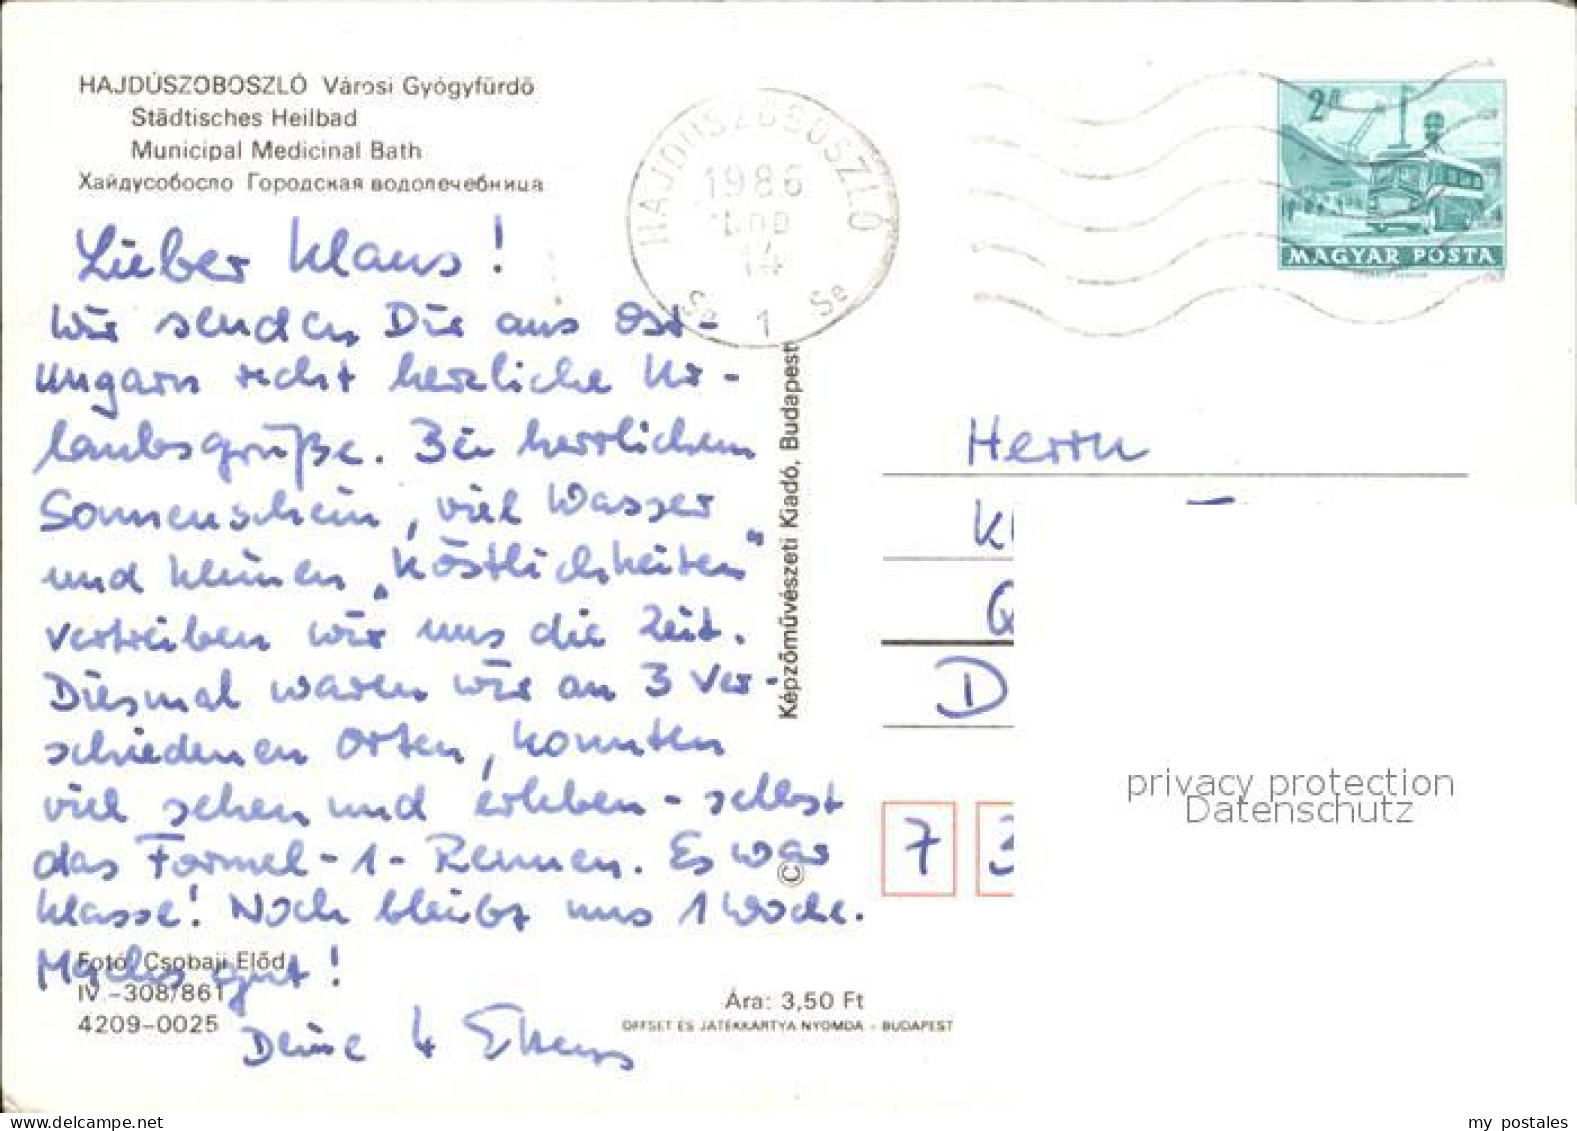 HAJDÚSZOBOSZLÓ Városi Gyógyfürdő
Städtisches Heilbad
Municipal Medicinal Bath
Хайдусобосло Городская водолечебница
HAJDUSZOBOSZLÓ
1986
14
1
2
MAGYAR POSTA
Lieber Klaus!
Wir senden Dir aus Ost-
ungarn recht herzliche Ur-
laubsgrüße. Bei herrlichem
Sonnenschein, viel Wasser
und kleinen „Köstlichkeiten"
vertreiben wir uns die Zeit.
Diesmal waren wir an 3 ver-
schiedenen Orten, konnten
viel sehen und erleben - selbst
das Formel-1-Rennen. Es war
klasse! Noch bleibt uns 1 Woche.
Machs gut!
Deine 4
Képzőművészeti Kiadó, Budapest
©
Herrn
Kl
D
7 3
Fotó: Csobaji Előd
IV.-308/861
4209-0025
Ára: 3,50 Ft
OFFSET ÉS JÁTÉKKÁRTYA NYOMDA - BUDAPEST
privacy protection
Datenschutz
my postales